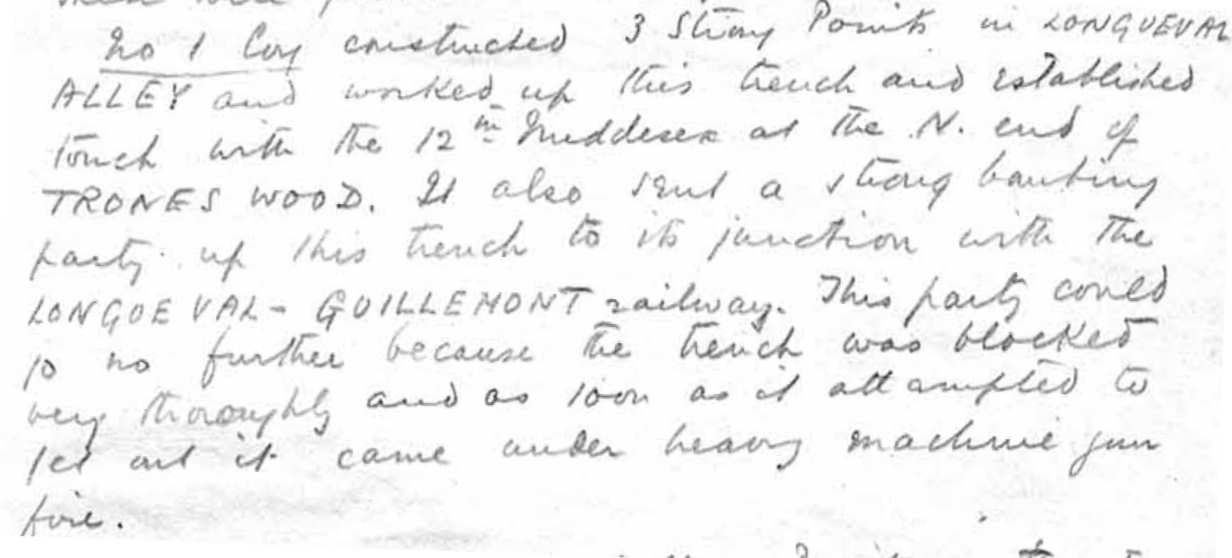 No 1 Coy constructed 3 Strong Points in LONGUEVAL
ALLEY and worked up this trench and established
touch with the 12th Middlesex at the N. end of
TRONES WOOD. It also sent a strong bombing
party up this trench to its junction with the
LONGUEVAL - GUILLEMONT railway. This party could
go no further because the trench was blocked
very thoroughly and as soon as it attempted to
get out it came under heavy machine gun
fire.